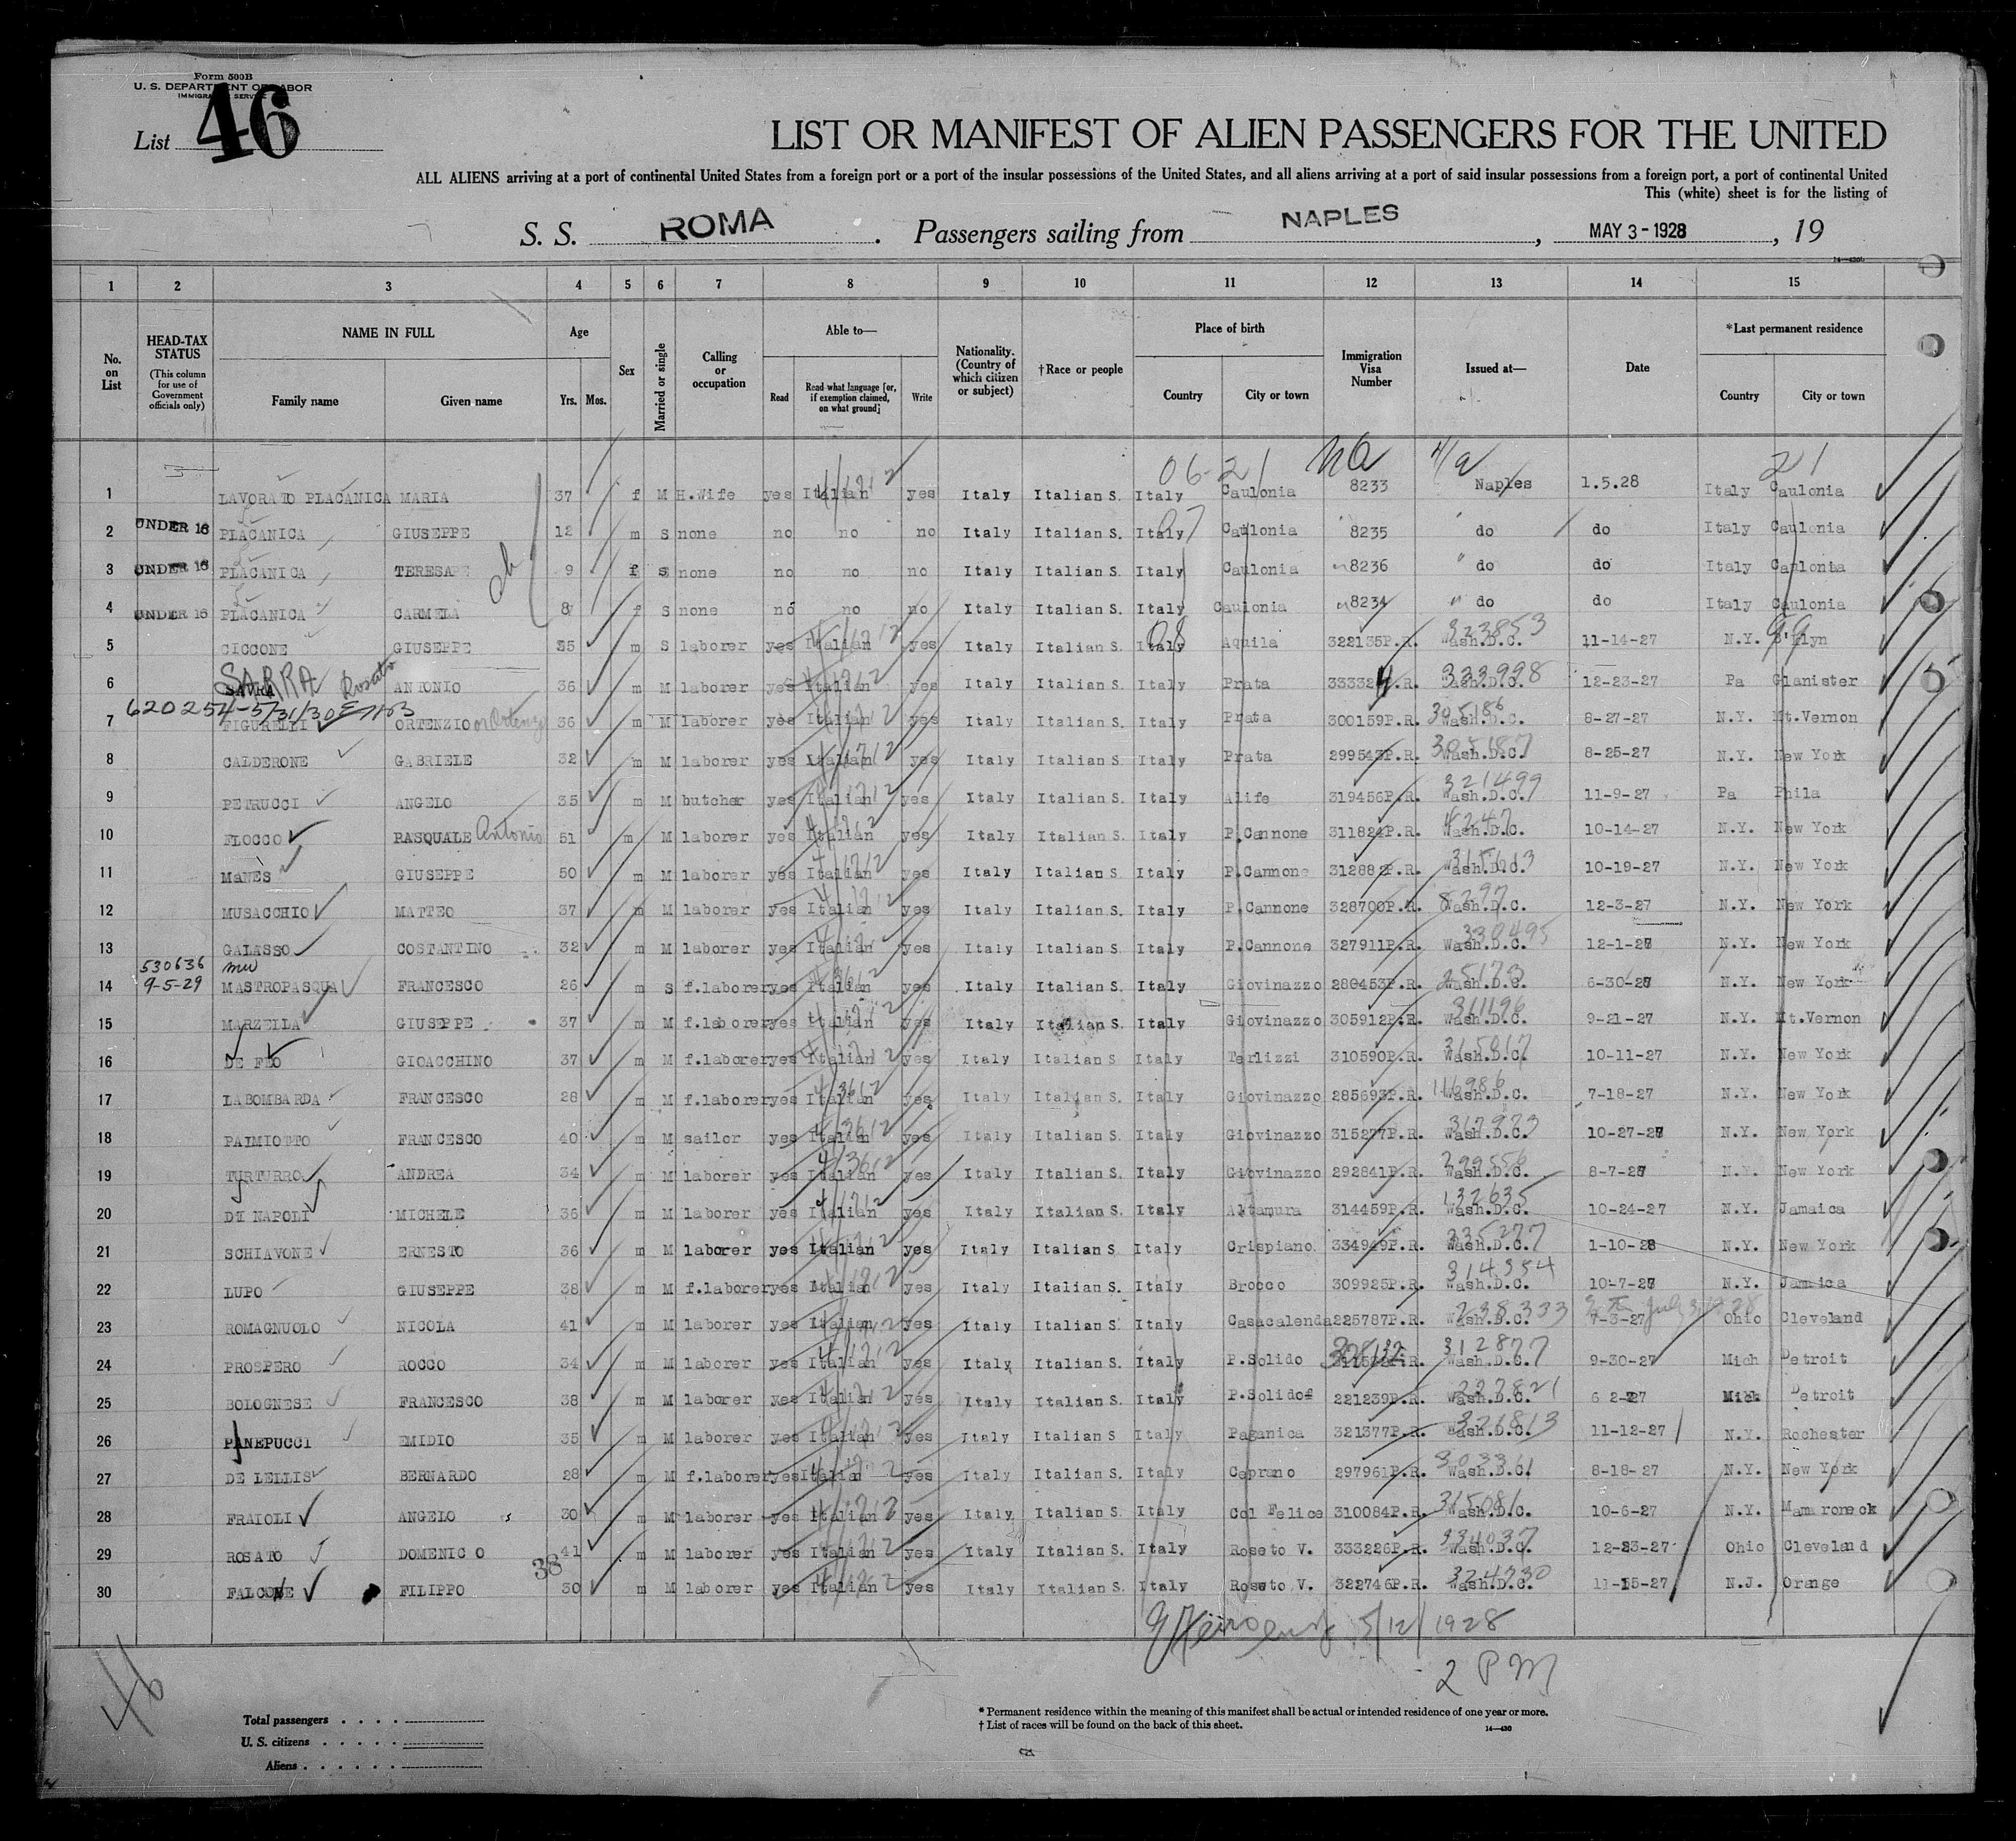 Form 500B
U. S. DEPARTMENT OF LABOR
IMMIGRATION SERVICE
List 46
LIST OR MANIFEST OF ALIEN PASSENGERS FOR THE UNITED
ALL ALIENS arriving at a port of continental United States from a foreign port or a port of the insular possessions of the United States, and all aliens arriving at a port of said insular possessions from a foreign port, a port of continental United
This (white) sheet is for the listing of
S. S. ROMA. Passengers sailing from NAPLES, MAY 3-1928, 19
1 2 3 4 5 6 7 8 9 10 11 12 13 14 15
No. on List
HEAD-TAX STATUS (This column for use of Government officials only)
NAME IN FULL Family name Given name
Age Yrs. Mos.
Sex
Married or single
Calling or occupation
Able to— Read Read what language [or, if exemption claimed, on what ground] Write
Nationality. (Country of which citizen or subject)
†Race or people
Place of birth Country City or town
Immigration Visa Number
Issued at—
Date
*Last permanent residence Country City or town
06-21 21
1 LAVORATO PLACANICA MARIA 37 f M H.Wife yes Italian yes Italy Italian S. Italy Caulonia 8233 Naples 1.5.28 Italy Caulonia
2 UNDER 16 PLACANICA GIUSEPPE 12 m S none no no no Italy Italian S. Italy Caulonia 8235 do do Italy Caulonia
3 UNDER 16 PLACANICA TERESA 9 f S none no no no Italy Italian S. Italy Caulonia 8236 do do Italy Caulonia
4 UNDER 16 PLACANICA CARMELA 8 f S none no no no Italy Italian S. Italy Caulonia 8234 do do Italy Caulonia
5 CICCONE GIUSEPPE 35 m S laborer yes Italian yes Italy Italian S. Italy Aquila 322135P.R. Wash.D.C. 323853 11-14-27 N.Y. B'klyn
6 SARRA ANTONIO 36 m M laborer yes Italian yes Italy Italian S. Italy Prata 333324P.R. Wash.D.C. 333998 12-23-27 Pa Glanister
620254-5/31/30
7 FIGURELLI ORTENZIO 36 m M laborer yes Italian yes Italy Italian S. Italy Prata 300159P.R. Wash.D.C. 305186 8-27-27 N.Y. Mt.Vernon
8 CALDERONE GABRIELE 32 m M laborer yes Italian yes Italy Italian S. Italy Prata 299543P.R. Wash.D.C. 305187 8-25-27 N.Y. New York
9 PETRUCCI ANGELO 35 m M butcher yes Italian yes Italy Italian S. Italy Alife 319456P.R. Wash.D.C. 321499 11-9-27 Pa Phila
10 FLOCCO PASQUALE Antonio 51 m M laborer yes Italian yes Italy Italian S. Italy P.Cannone 311824P.R. Wash.D.C. 10-14-27 N.Y. New York
11 MANES GIUSEPPE 50 m M laborer yes Italian yes Italy Italian S. Italy P.Cannone 312882P.R. Wash.D.C. 10-19-27 N.Y. New York
12 MUSACCHIO MATTEO 37 m M laborer yes Italian yes Italy Italian S. Italy P.Cannone 328700P.R. Wash.D.C. 12-3-27 N.Y. New York
13 GALASSO COSTANTINO 32 m M laborer yes Italian yes Italy Italian S. Italy P.Cannone 327911P.R. Wash.D.C. 330495 12-1-27 N.Y. New York
530636
14 9-5-29 MASTROPASQUA FRANCESCO 26 m S f.laborer yes Italian yes Italy Italian S. Italy Giovinazzo 280453P.R. Wash.D.C. 6-30-27 N.Y. New York
15 MARZELLA GIUSEPPE 37 m M f.laborer yes Italian yes Italy Italian S. Italy Giovinazzo 305912P.R. Wash.D.C. 311196 9-21-27 N.Y. Mt.Vernon
16 DE FEO GIOACCHINO 37 m M f.laborer yes Italian yes Italy Italian S Italy Terlizzi 310590P.R. Wash.D.C. 10-11-27 N.Y. New York
17 LABOMBARDA FRANCESCO 28 m M f.laborer yes Italian yes Italy Italian S. Italy Giovinazzo 285693P.R. Wash.D.C. 7-18-27 N.Y. New York
18 PAIMIOTTO FRANCESCO 40 m M sailor yes Italian yes Italy Italian S. Italy Giovinazzo 315277P.R. Wash.D.C. 317973 10-27-27 N.Y. New York
19 TURTURRO ANDREA 34 m M laborer yes Italian yes Italy Italian S. Italy Giovinazzo 292841P.R. Wash.D.C. 299556 8-7-27 N.Y. New York
20 DI NAPOLI MICHELE 36 m M laborer yes Italian yes Italy Italian S. Italy Altamura 314459P.R. Wash.D.C. 132635 10-24-27 N.Y. Jamaica
21 SCHIAVONE ERNESTO 36 m M laborer yes Italian yes Italy Italian S. Italy Crispiano 334949P.R. Wash.D.C. 335277 1-10-28 N.Y. New York
22 LUPO GIUSEPPE 38 m M f.laborer yes Italian yes Italy Italian S. Italy Brocco 309925P.R. Wash.D.C. 314354 10-7-27 N.Y. Jamaica
23 ROMAGNUOLO NICOLA 41 m M laborer yes Italian yes Italy Italian S. Italy Casacalenda 225787P.R. Wash.D.C. 238333 7-3-27 Ohio Cleveland
24 PROSPERO ROCCO 34 m M laborer yes Italian yes Italy Italian S. Italy P.Solido P.R. Wash.D.C. 312877 9-30-27 Mich Detroit
25 BOLOGNESE FRANCESCO 38 m M laborer yes Italian yes Italy Italian S. Italy P.Solido 221239P.R. Wash.D.C. 227821 6 2-27 Mich Detroit
26 PANEPUCCI EMIDIO 35 m M laborer yes Italian yes Italy Italian S Italy Paganica 321377P.R. Wash.D.C. 326813 11-12-27 N.Y. Rochester
27 DE LELLIS BERNARDO 28 m M f.laborer yes Italian yes Italy Italian S. Italy Ceprano 297961P.R. Wash.D.C. 8-18-27 N.Y. New York
28 FRAIOLI ANGELO 30 m M laborer yes Italian yes Italy Italian S. Italy Col Felice 310084P.R. Wash.D.C. 315081 10-6-27 N.Y. Mamaroneck
29 ROSATO DOMENICO 41 38 m M laborer yes Italian yes Italy Italian S. Italy Roseto V. 333226P.R. Wash.D.C. 334037 12-23-27 Ohio Cleveland
30 FALCONE FILIPPO 30 m M laborer yes Italian yes Italy Italian S. Italy Roseto V. 322746P.R. Wash.D.C. 11-15-27 N.J. Orange
5/12/1928
2 PM
46
Total passengers
U. S. citizens
Aliens
* Permanent residence within the meaning of this manifest shall be actual or intended residence of one year or more.
† List of races will be found on the back of this sheet.
14—430